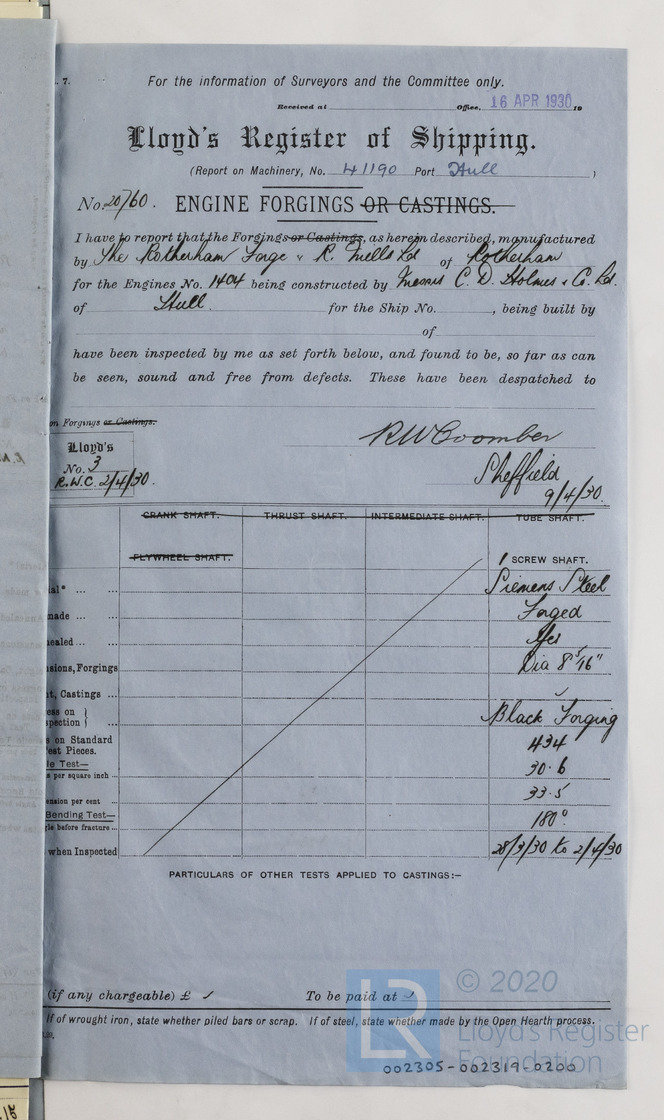 . 7.
For the information of Surveyors and the Committee only.
Received at Office, 16 APR 1930 19
Lloyd's Register of Shipping.
(Report on Machinery, No. 41190 Port Hull )
No. 20760. ENGINE FORGINGS OR CASTINGS.
I have to report that the Forgings or Castings, as herein described, manufactured
by The Rotherham Forge & R. Mills Ld of Rotherham
for the Engines No. 1404 being constructed by Messrs C. D. Holmes & Co. Ld.
of Hull. for the Ship No. , being built by
of
have been inspected by me as set forth below, and found to be, so far as can
be seen, sound and free from defects. These have been despatched to
n Forgings or Castings.
Lloyd's
No. 3
R.W.C. 2/4/30.
RW Coomber
Sheffield
9/4/30.
CRANK SHAFT. THRUST SHAFT. INTERMEDIATE SHAFT. TUBE SHAFT.
FLYWHEEL SHAFT. 1 SCREW SHAFT.
ial* ... ... Siemens Steel
made ... ... Forged
ealed ... ... Yes
sions, Forgings Dia 8 5/16"
t, Castings ... ✓
ess on }
spection } ... Black Forging
s on Standard
est Pieces. 434
le Test—
s per square inch ... 30.6
ension per cent ... 33.5
Bending Test—
gle before fracture ... 180°
when Inspected 28/3/30 to 2/4/30
PARTICULARS OF OTHER TESTS APPLIED TO CASTINGS:—
(if any chargeable) £ ✓ To be paid at ✓
If of wrought iron, state whether piled bars or scrap. If of steel, state whether made by the Open Hearth process.
LR
© 2020
Lloyd's Register
Foundation
002305-002319-0200